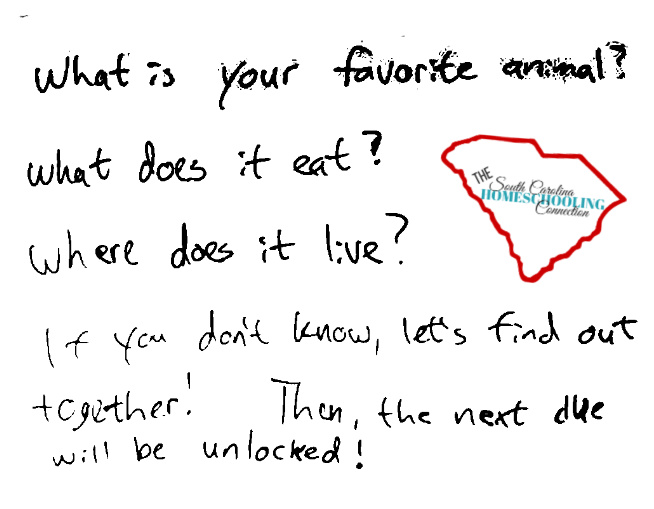 What is your favorite animal?
What does it eat?
THE
South Carolina
HOMESCHOOLING
Connection
Where does it live?
If you don't know, let's find out
together! Then, the next due
will be unlocked!